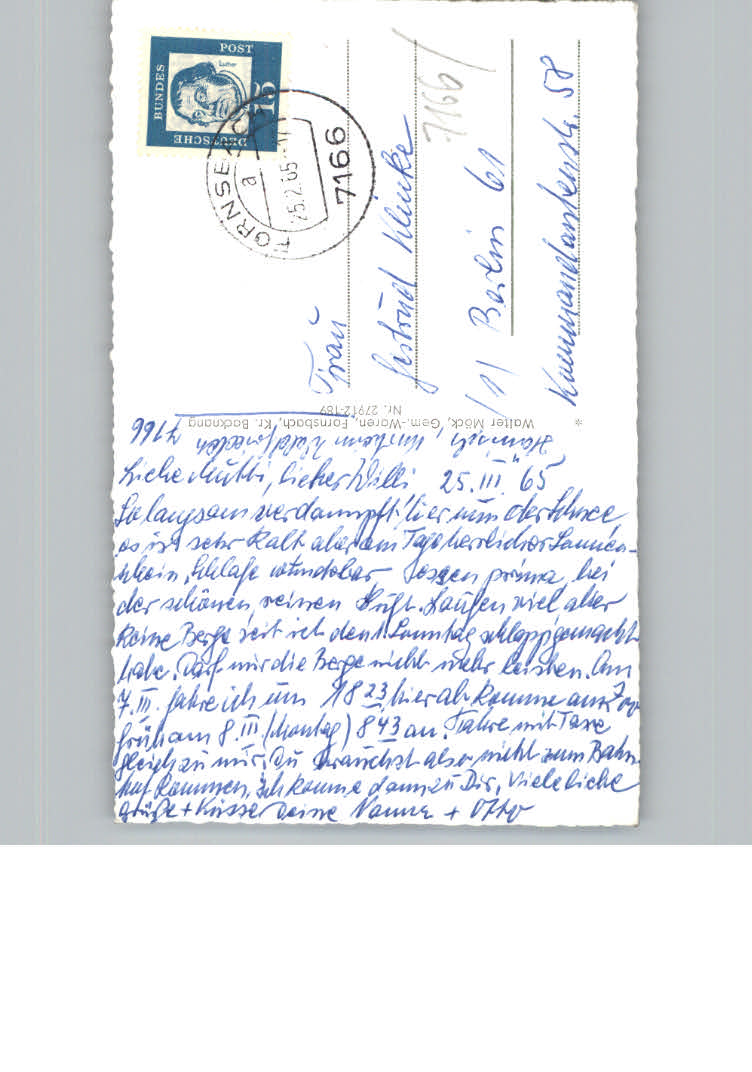 DEUTSCHE
BUNDES
POST
Luther
15
FORNSBACH
a
25.2.65
7166
7166/
Frau
Gertrud Klinke
1/1 Berlin 61
Kommandantenstr. 58
* Walter Möck, Gem.-Waren, Fornsbach, Kr. Backnang
Nr. 27912-189
Kurheim Waldfrieden 7166
Liebe Mutti, lieber Willi 25.III.65
So langsam verdampft hier nun der Schnee
es ist sehr kalt aber am Tage herrlicher Sonnen-
schein. Schlafe wunderbar Essen prima, bei
der schönen, reinen Luft. Laufen viel aber
keine Berge seit ich den 1. Sonntag schlapp gemacht
habe. Darf mir die Berge nicht mehr leisten. Am
7.III. fahre ich um 18 23 hier ab komme am Zoo
früh am 8.III (Montag) 8 43 an. Fahre mit Taxe
gleich zu mir. Du brauchst also nicht zum Bahn-
hof kommen, ich komme dann zu Dir. Viele liebe
Grüße + Küsse Deine + Otto